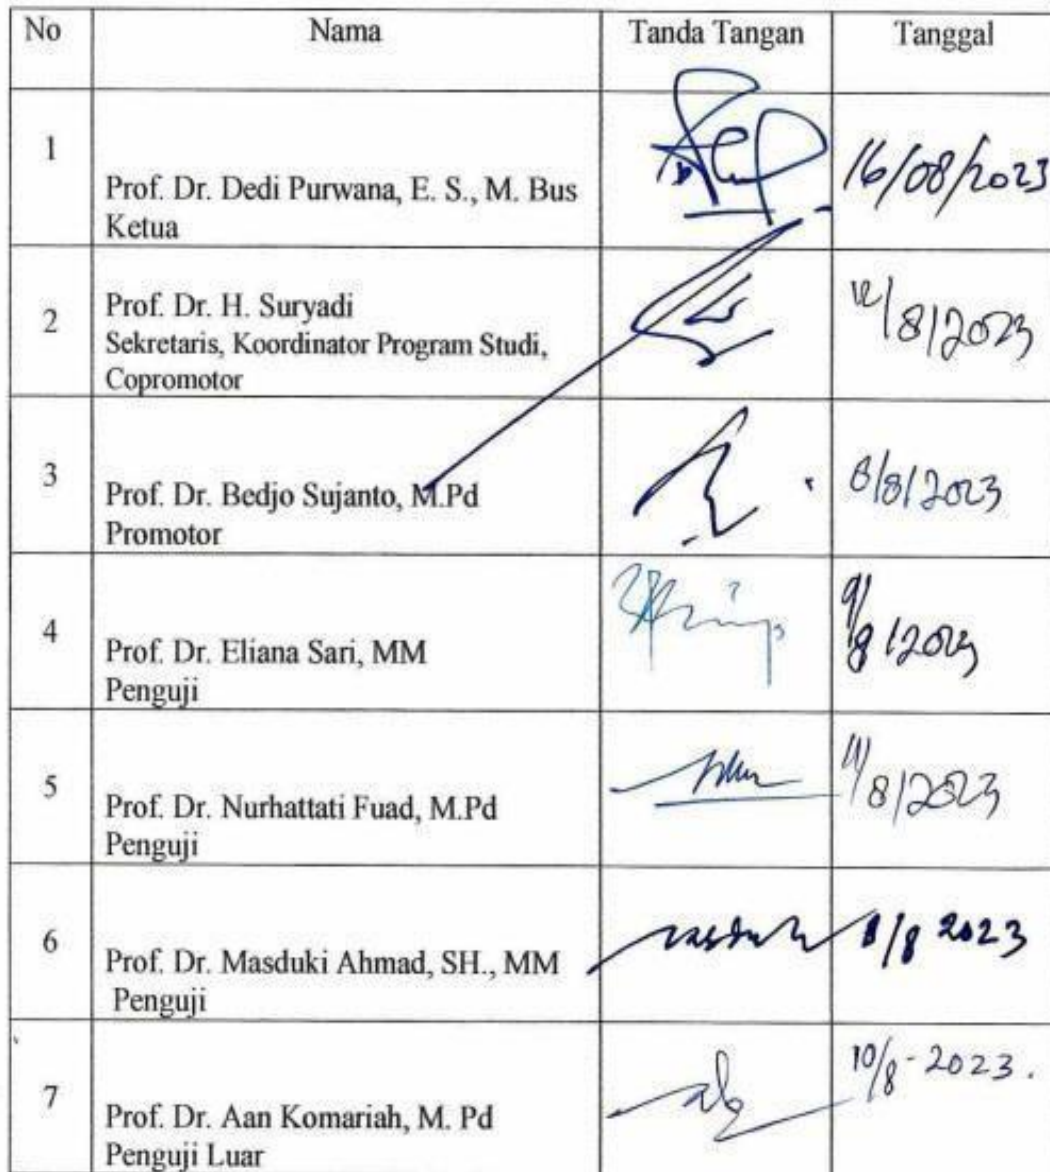 No Nama Tanda Tangan Tanggal
1
Prof. Dr. Dedi Purwana, E. S., M. Bus 16/08/2023
Ketua
Prof. Dr. H. Suryadi
2 12/8/2023
Sekretaris, Koordinator Program Studi,
Copromotor
3 8/8/2023
Prof. Dr. Bedjo Sujanto, M.Pd
Promotor
4 9/8/2023
Prof. Dr. Eliana Sari, MM
Penguji
5 11/8/2023
Prof. Dr. Nurhattati Fuad, M.Pd
Penguji
6 8/8 2023
Prof. Dr. Masduki Ahmad, SH., MM
Penguji
10/8-2023.
7
Prof. Dr. Aan Komariah, M. Pd
Penguji Luar